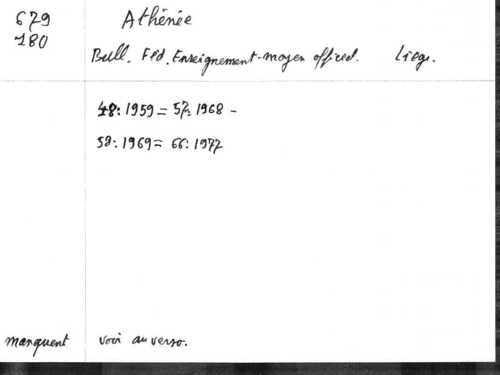 679 Athénée
180
Bull. Féd. Enseignement-moyen officiel. Liège.
48: 1959 = 57: 1968 -
58: 1969 = 66: 1977
manquent voir au verso.